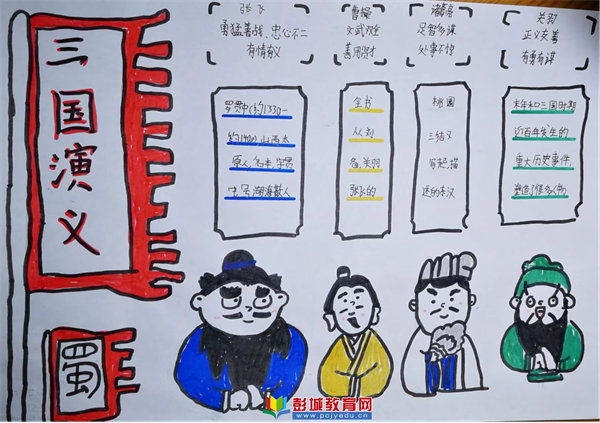 三国演义
蜀
张飞
勇猛善战、忠心不二
有情有义
曹操
文武双全
善用贤才
诸葛亮
足智多谋
处事不惊
关羽
正义友善
有勇有谋
罗贯中(约1330—
约1400)山西太
原人,名本,字贯
中,号湖海散人
全书
从刘
备、关羽
张飞的
桃园
三结义
写起,描
述的东汉
末年和三国时期
近百年发生的
重大历史事件,
塑造了很多人物
彭城教育网
www.pcjyedu.com